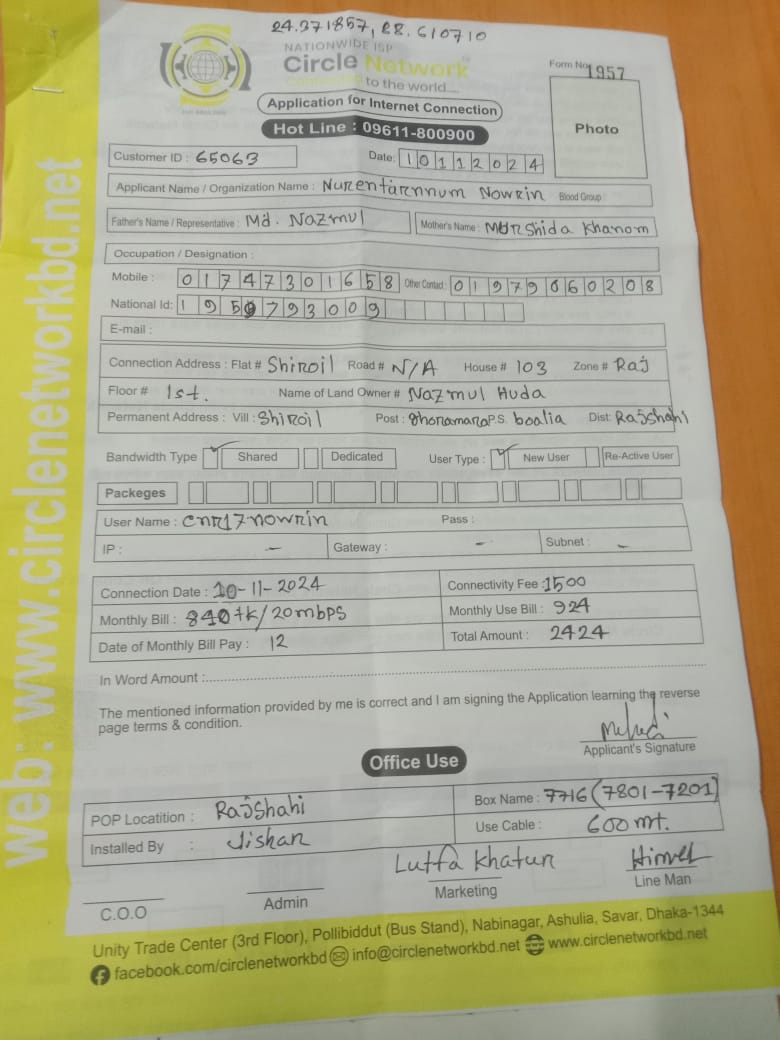 24.371857, 88.610710
NATIONWIDE ISP
Circle Network
Connected to the world....
Form No. 1957
Application for Internet Connection
Hot Line : 09611-800900
Photo
Customer ID : 65063 Date: 10112024
Applicant Name / Organization Name : Nurentarennum Nowrin Blood Group :
Father's Name / Representative : Md. Nazmul Mother's Name : Murshida Khanom
Occupation / Designation :
Mobile : 01747301658 Other Contact : 01979060208
National Id: 1950793009
E-mail :
Connection Address : Flat # Shiroil Road # N/A House # 103 Zone # Raj
Floor # 1st. Name of Land Owner # Nazmul Huda
Permanent Address : Vill : Shiroil Post : Ghoramara P.S. boalia Dist: Rajshahi
Bandwidth Type ✓ Shared Dedicated User Type : ✓ New User Re-Active User
Packeges
User Name : cnr17nowrin Pass :
IP : – Gateway : – Subnet : –
Connection Date : 10-11-2024 Connectivity Fee : 1500
Monthly Bill : 840tk/20mbps Monthly Use Bill : 924
Date of Monthly Bill Pay : 12 Total Amount : 2424
In Word Amount :
The mentioned information provided by me is correct and I am signing the Application learning the reverse
page terms & condition.
Applicant's Signature
Office Use
POP Locatition : Rajshahi Box Name : 7716(7801-7201)
Installed By : Jishan Use Cable : 600 mt.
Lutfa Khatun
C.O.O Admin Marketing Line Man
Unity Trade Center (3rd Floor), Pollibiddut (Bus Stand), Nabinagar, Ashulia, Savar, Dhaka-1344
facebook.com/circlenetworkbd info@circlenetworkbd.net www.circlenetworkbd.net
web: www.circlenetworkbd.net